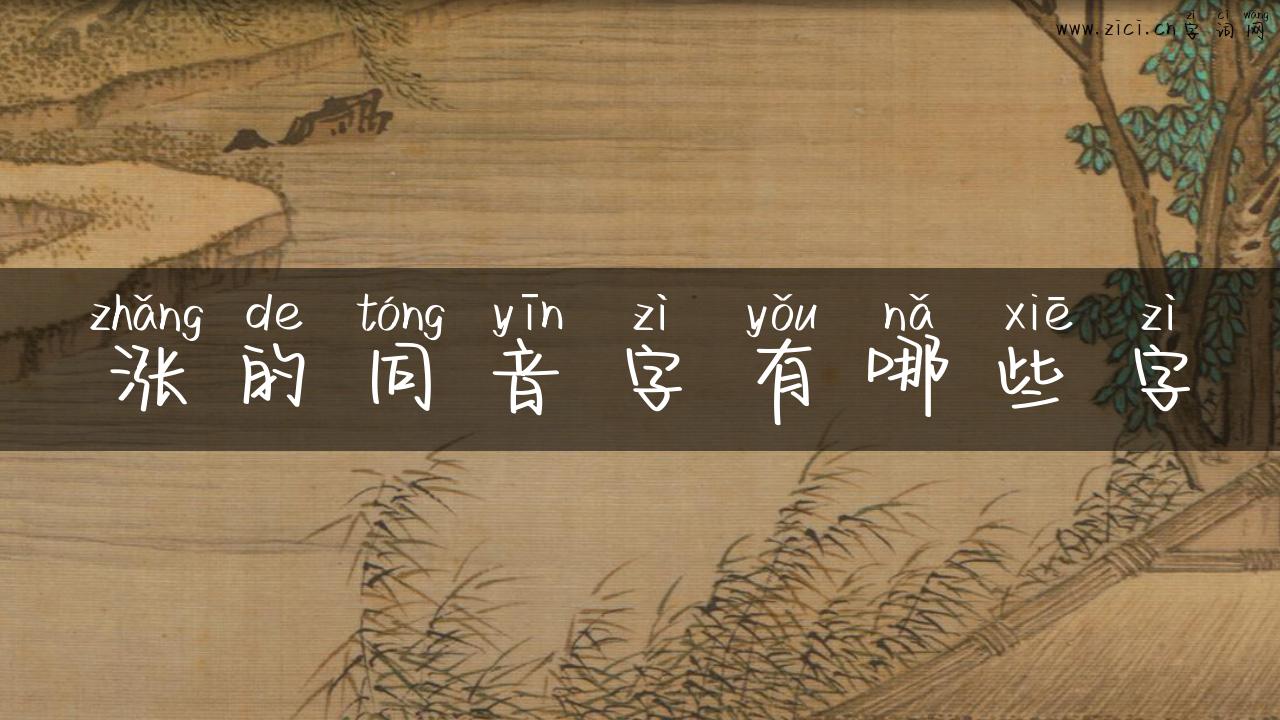 zì cí wǎng
www.zici.cn字词网
zhǎng de tóng yīn zì yǒu nǎ xiē zì
涨的同音字有哪些字